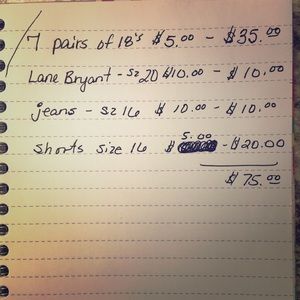 7 pairs of 18's $5.00 - $35.00
Lane Bryant - sz 20 $10.00 - $10.00
jeans - sz 16 $10.00 - $10.00
shorts size 16 $ 5.00 - $20.00
$75.00